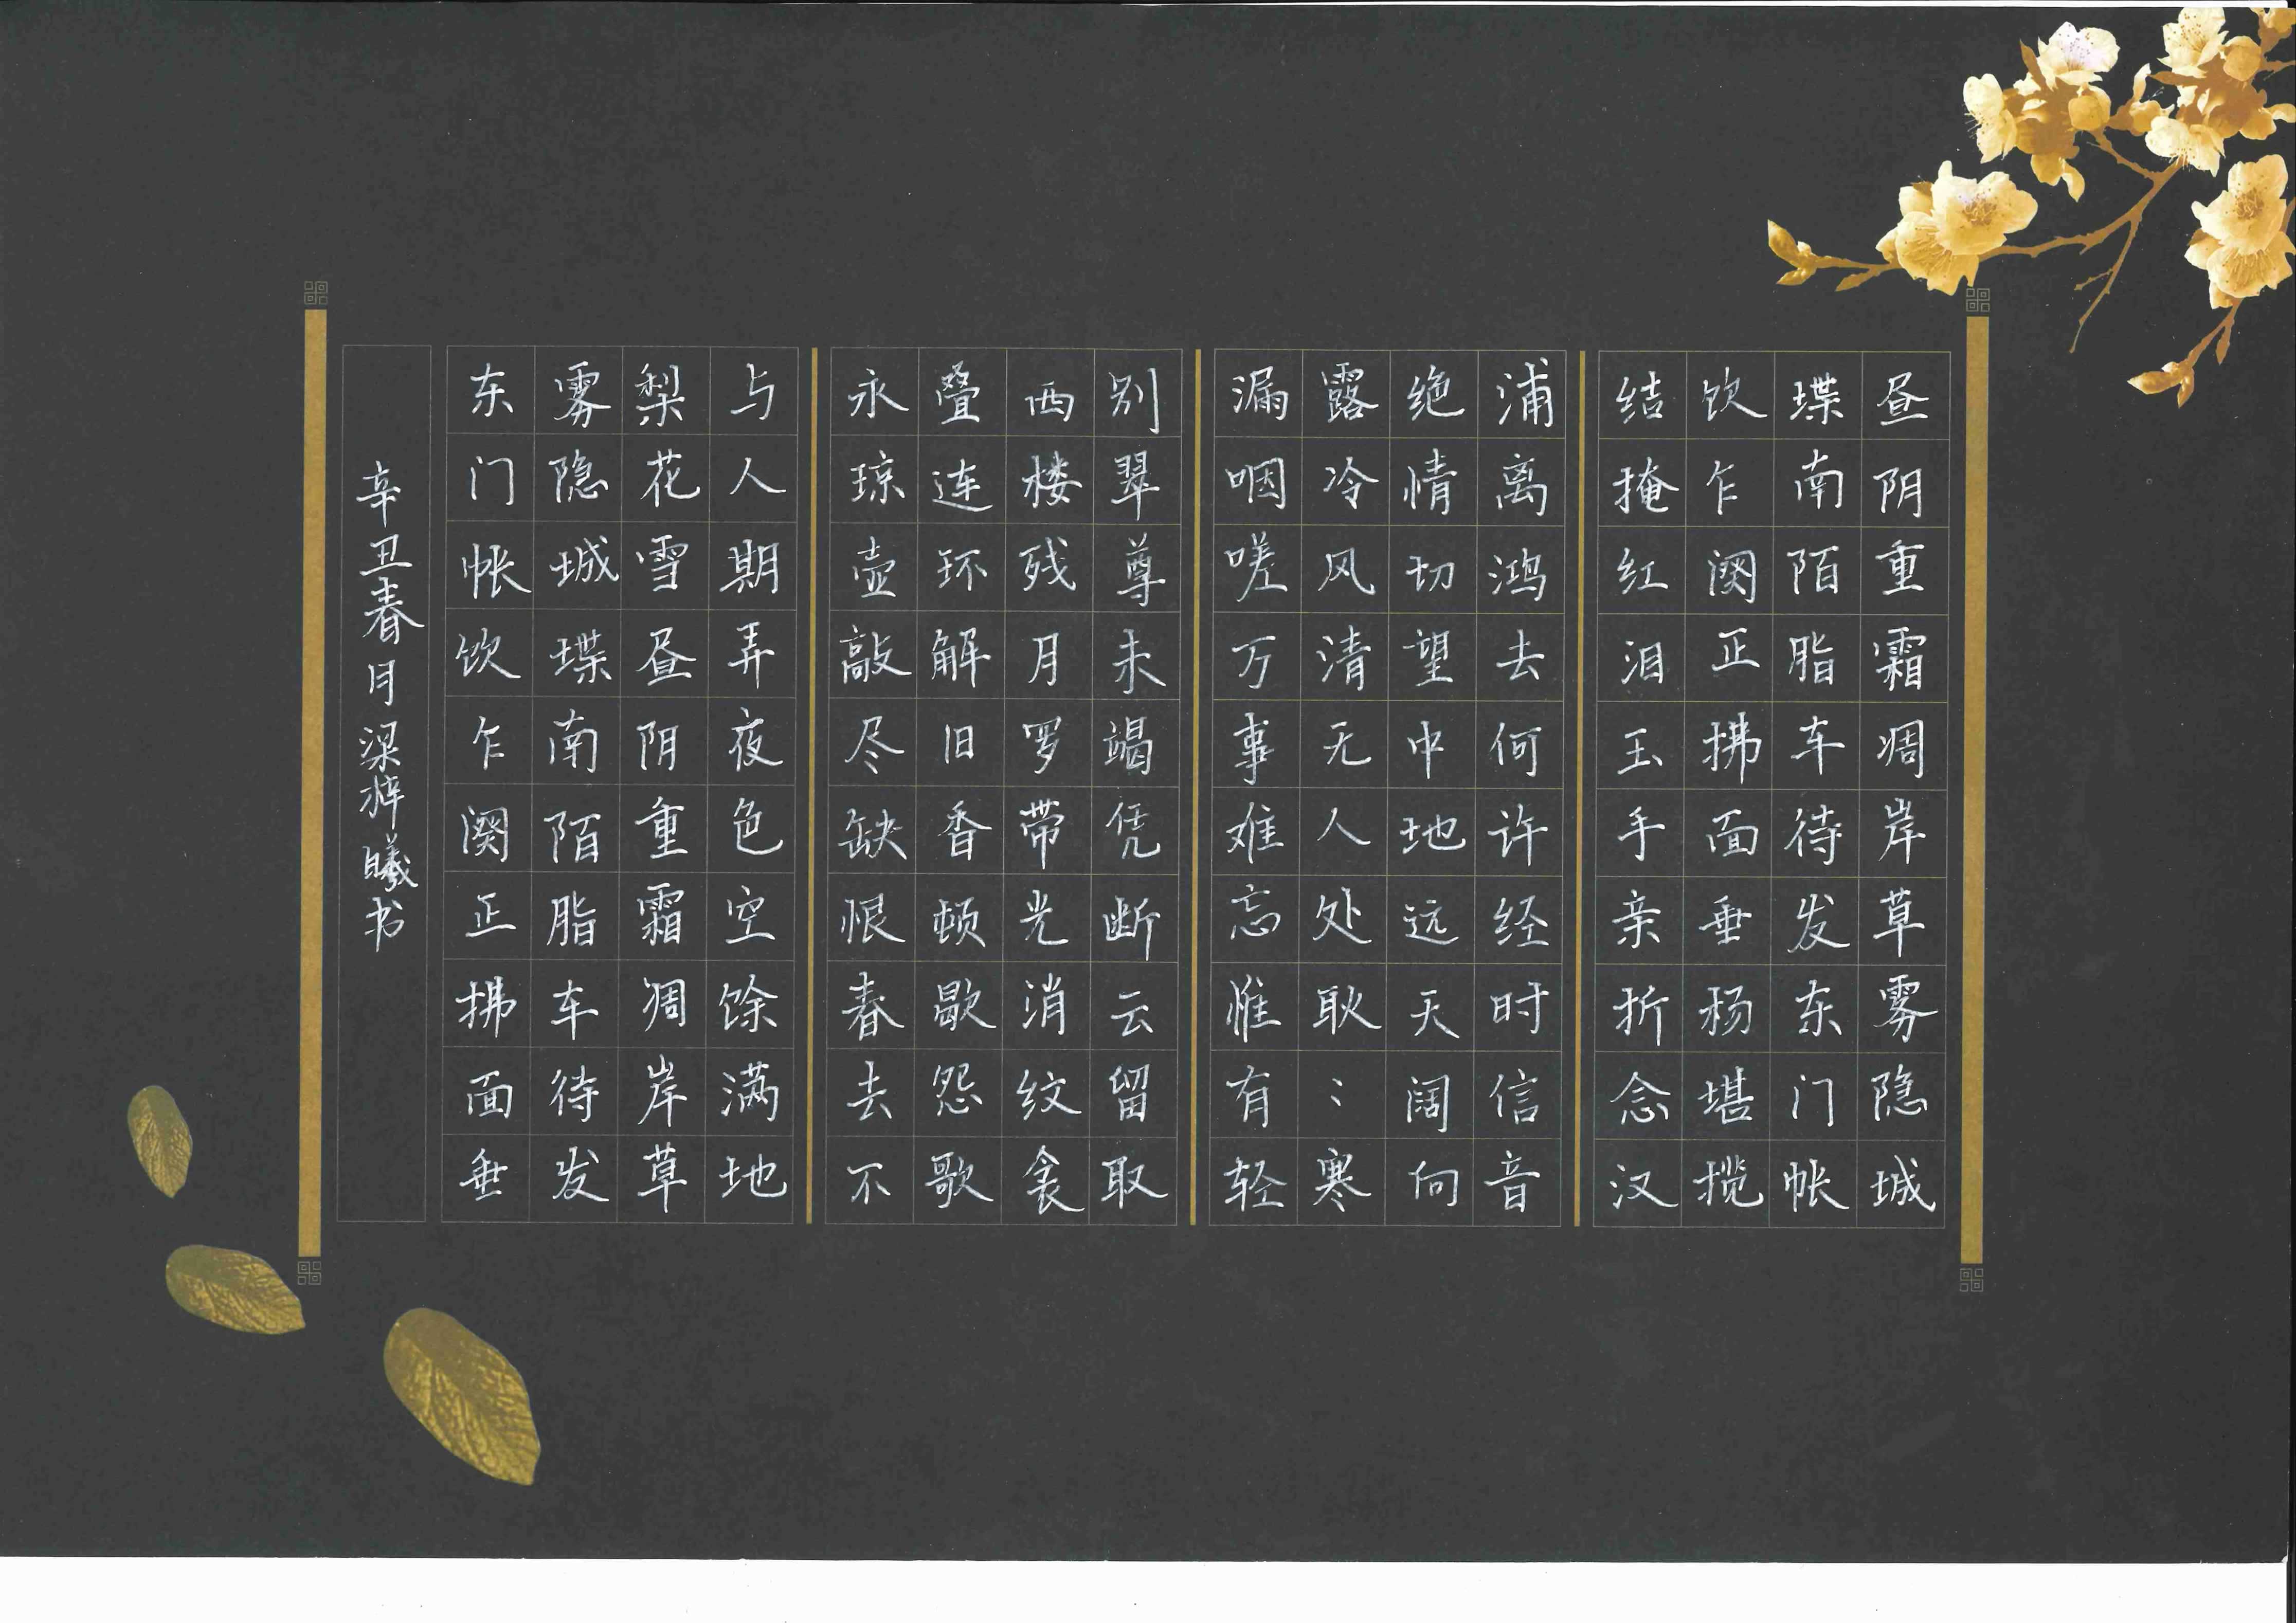 昼阴重霜凋岸草雾隐城
堞南陌脂车待发东门帐
饮乍阕正拂面垂杨堪揽
结掩红泪玉手亲折念汉
浦离鸿去何许经时信音
绝情切望中地远天阔向
露冷风清无人处耿〻寒
漏咽嗟万事难忘惟有轻
别翠尊未竭凭断云留取
西楼残月罗带光消纹衾
叠连环解旧香顿歇怨歌
永琼壶敲尽缺恨春去不
与人期弄夜色空馀满地
梨花雪昼阴重霜凋岸草
雾隐城堞南陌脂车待发
东门帐饮乍阕正拂面垂
辛丑春月梁梓曦书